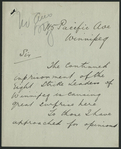 Pacific Ave
Winnipeg
Sir
The continued
imprisonment of the
eight Strike leaders of
Winnipeg is causing
great surprise here
To those I have
approached for opinions